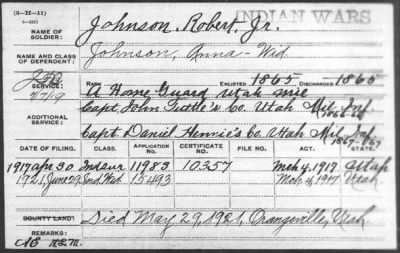 (3-IX-11)
INDIAN WARS
NAME OF SOLDIER: Johnson, Robert, Jr.
NAME AND CLASS OF DEPENDENT: Johnson, Anna - Wid
SERVICE: RANK ENLISTED 1865 DISCHARGED 1865
A Home Guard Utah Mil
4/7/19
Capt. John Tuttle's Co. Utah Mil. Inf.
1866-66
ADDITIONAL SERVICE:
Capt. Daniel Henrie's Co. Utah Mil. Inf.
1867-867
DATE OF FILING. CLASS. APPLICATION NO. CERTIFICATE NO. FILE NO. ACT. STATE.
1917 apr 30 Ind Sur 11983 10357 Mch 4, 1917 Utah
1921, June 29 Ind Wid 15493 Mch 4, 1917 Utah
BOUNTY LAND: Died May 29, 1921, Orangeville, Utah
REMARKS: